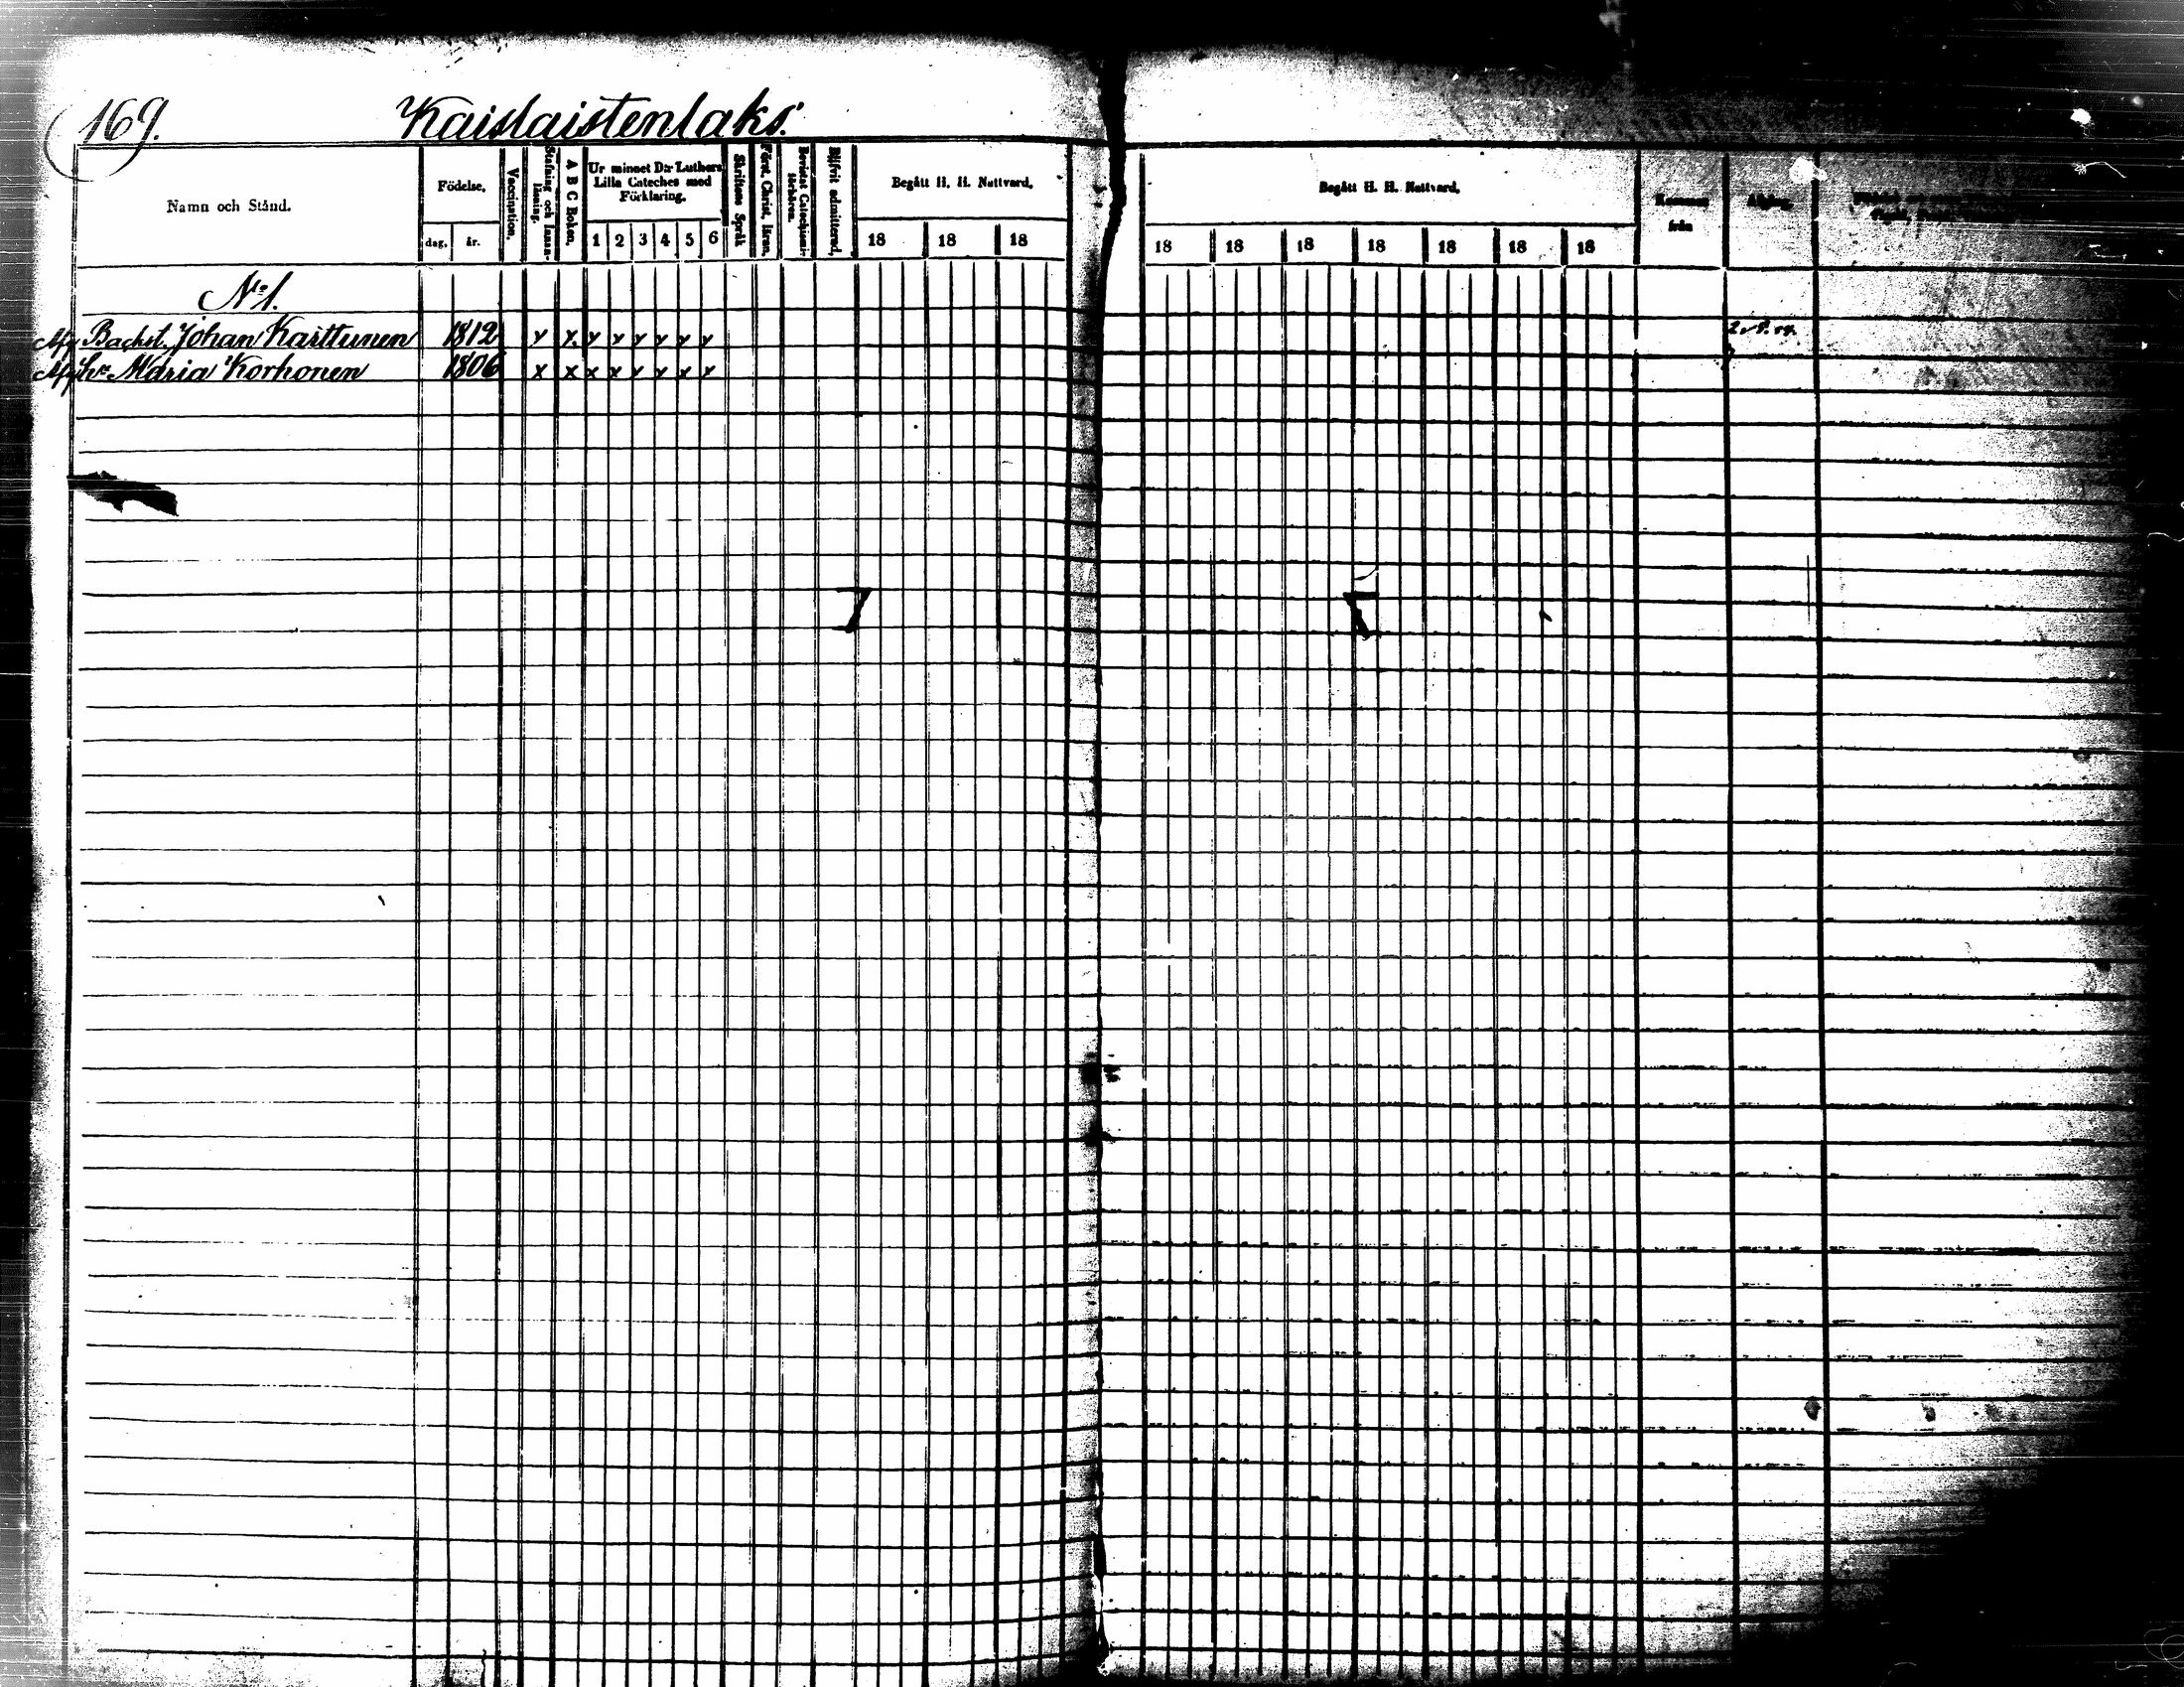 169. Kaislaistenlaks.
Namn och Stånd.
Födelse.
dag. år.
Vaccination.
Stafning och Innan-läsning.
A B C Boken.
Ur minnet D:r Luthers Lilla Cateches med Förklaring.
1 2 3 4 5 6
Skriftens Språk
Förest. Christ. kran.
Bevistat Catechismi-förhören.
Blifvit admitterad.
Begått H. H. Nattvard.
18 18 18
Begått H. H. Nattvard.
18 18 18 18 18 18 18
Kommen från
Afgång.
No 1.
Afg Backst. Johan Karttunen 1812 x x x x x x x x
Afg hr Maria Korhonen 1806 x x x x x x x x